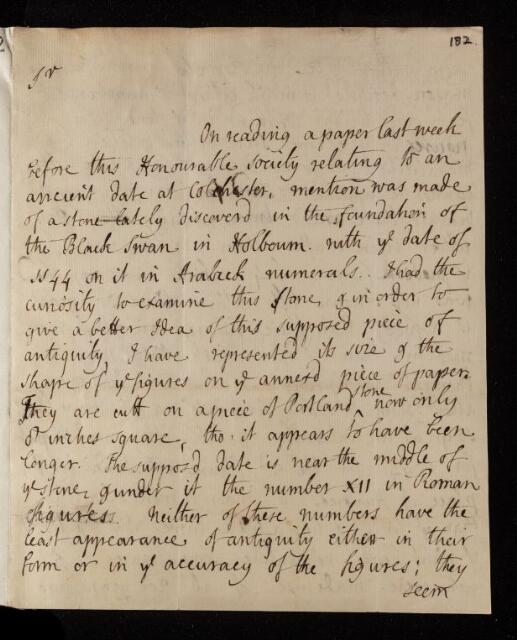 182.
Sr
On reading a paper last week
before this Honourable Society relating to an
ancient date at Colchester, mention was made
of a stone lately discoverd in the foundation of
the Black Swan in Holbourn with ye date of
1144 on it in Arabick numerals. I had the
curiosity to examine this stone, & in order to
give a better Idea of this supposed piece of
antiquity I have represented its size & the
shape of ye figures on ye annexd piece of paper.
They are cutt on a piece of Portland stone now only
8 inches square, tho' it appears to have been
longer. The supposd date is near the middle of
ye stone, & under it the number XII in Roman
figures. Neither of these numbers have the
least appearance of antiquity either in their
form or in ye accuracy of the figures; they
seem